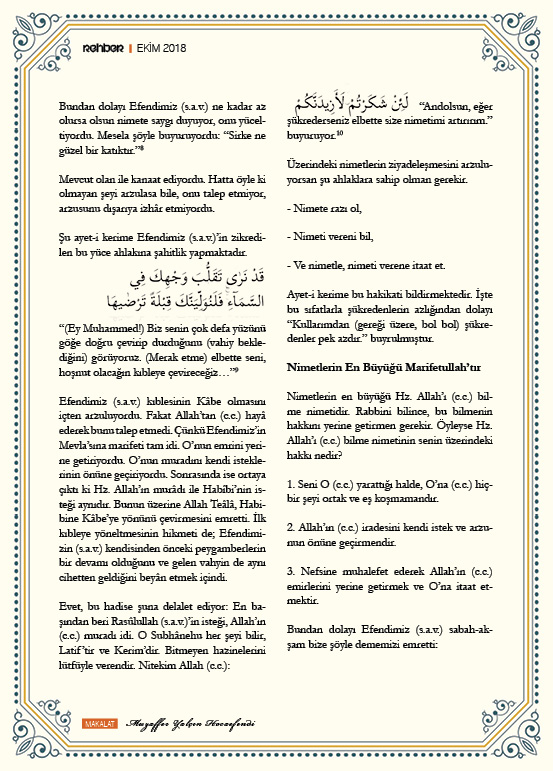 rehber | EKİM 2018
Bundan dolayı Efendimiz (s.a.v.) ne kadar az
olursa olsun nimete saygı duyuyor, onu yücel-
tiyordu. Mesela şöyle buyuruyordu: “Sirke ne
güzel bir katıktır.”8
Mevcut olan ile kanaat ediyordu. Hatta öyle ki
olmayan şeyi arzulasa bile, onu talep etmiyor,
arzusunu dışarıya izhâr etmiyordu.
Şu ayet-i kerime Efendimiz (s.a.v.)’in zikredi-
len bu yüce ahlakına şahitlik yapmaktadır.
قَدْ نَرٰى تَقَلُّبَ وَجْهِكَ فِي
السَّمَٓاءِۚ فَلَنُوَلِّيَنَّكَ قِبْلَةً تَرْضٰيهَا
“(Ey Muhammed!) Biz senin çok defa yüzünü
göğe doğru çevirip durduğunu (vahiy bekle-
diğini) görüyoruz. (Merak etme) elbette seni,
hoşnut olacağın kıbleye çevireceğiz…”9
Efendimiz (s.a.v.) kıblesinin Kâbe olmasını
içten arzuluyordu. Fakat Allah’tan (c.c.) hayâ
ederek bunu talep etmedi. Çünkü Efendimiz’in
Mevla’sına marifeti tam idi. O’nun emrini yeri-
ne getiriyordu. O’nun muradını kendi istekle-
rinin önüne geçiriyordu. Sonrasında ise ortaya
çıktı ki Hz. Allah’ın murâdı ile Habîbi’nin is-
teği aynıdır. Bunun üzerine Allah Teâlâ, Habi-
bine Kâbe’ye yönünü çevirmesini emretti. İlk
kıbleye yöneltmesinin hikmeti de; Efendimi-
zin (s.a.v.) kendisinden önceki peygamberlerin
bir devamı olduğunu ve gelen vahyin de aynı
cihetten geldiğini beyân etmek içindi.
Evet, bu hadise şuna delalet ediyor: En ba-
şından beri Rasûlullah (s.a.v.)’in isteği, Allah’ın
(c.c.) muradı idi. O Subhânehu her şeyi bilir,
Latif’tir ve Kerim’dir. Bitmeyen hazinelerini
lütfüyle verendir. Nitekim Allah (c.c.):
لَئِنْ شَكَرْتُمْ لَأَزِيدَنَّكُمْ “Andolsun, eğer
şükrederseniz elbette size nimetimi artırırım.”
buyuruyor.10
Üzerindeki nimetlerin ziyadeleşmesini arzulu-
yorsan şu ahlaklara sahip olman gerekir.
- Nimete razı ol,
- Nimeti vereni bil,
- Ve nimetle, nimeti verene itaat et.
Ayet-i kerime bu hakikati bildirmektedir. İşte
bu sıfatlarla şükredenlerin azlığından dolayı
“Kullarımdan (gereği üzere, bol bol) şükre-
denler pek azdır.” buyrulmuştur.
Nimetlerin En Büyüğü Marifetullah’tır
Nimetlerin en büyüğü Hz. Allah’ı (c.c.) bil-
me nimetidir. Rabbini bilince, bu bilmenin
hakkını yerine getirmen gerekir. Öyleyse Hz.
Allah’ı (c.c.) bilme nimetinin senin üzerindeki
hakkı nedir?
1. Seni O (c.c.) yarattığı halde, O’na (c.c.) hiç-
bir şeyi ortak ve eş koşmamandır.
2. Allah’ın (c.c.) iradesini kendi istek ve arzu-
nun önüne geçirmendir.
3. Nefsine muhalefet ederek Allah’ın (c.c.)
emirlerini yerine getirmek ve O’na itaat et-
mektir.
Bundan dolayı Efendimiz (s.a.v.) sabah-ak-
şam bize şöyle dememizi emretti:
MAKALAT Muzaffer Yalçın Hocaefendi